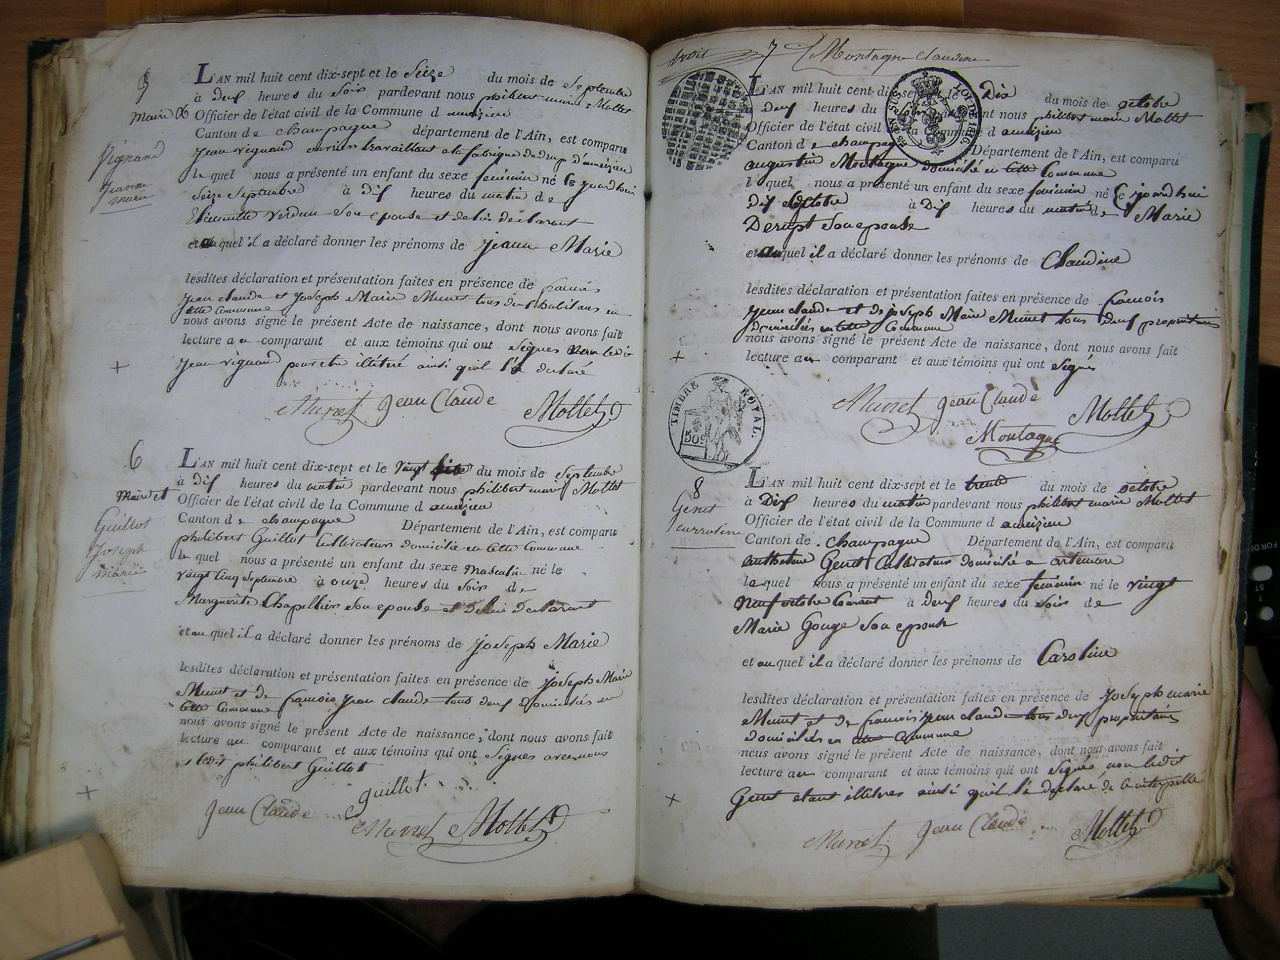 5
L'AN mil huit cent dix-sept et le Seize du mois de Septembre
à deux heures du Soir pardevant nous philibert marie Mollet
Maire & Officier de l'état civil de la Commune d'ameizieu
Canton de champagne département de l'Ain, est comparu
Jean vignand ouvrier travaillant a la fabrique de drap d'ameizieu
Vignand
Jeanne
marie
lequel nous a présenté un enfant du sexe féminin né le jourd'hui
Seize Septembre à dix heures du matin de
verdun Son epouse et de lui déclarant
et auquel il a déclaré donner les prénoms de Jeanne Marie
lesdites déclaration et présentation faites en présence de
Jean claude et Joseph Marie Munet tous deux habitans en
cette Commune
nous avons signé le présent Acte de naissance, dont nous avons fait
lecture au comparant et aux témoins qui ont Signés non ledit
Jean vignand pour etre illitéré ainsi quil l'a declaré
Munet Jean Claude Mollet
6
L'AN mil huit cent dix-sept et le vingt six du mois de Septembre
à dix heures du matin pardevant nous philibert marie Mollet
Maire et Officier de l'état civil de la Commune d'ameizieu
Canton de champagne Département de l'Ain, est comparu
Guillot
Joseph
marie
philibert Guillot Cultivateur domicilié en cette Commune
lequel nous a présenté un enfant du sexe masculin né le
vingt cinq Septembre à onze heures du Soir de
Marguerite Chapellier Son epouse et de lui declarant
et auquel il a déclaré donner les prénoms de Joseph Marie
lesdites déclaration et présentation faites en présence de Joseph Marie
Munet et de françois Jean claude tous deux domiciliés en
cette Commune
nous avons signé le présent Acte de naissance, dont nous avons fait
lecture au comparant et aux témoins qui ont Signés avec nous
ledit philibert Guillot
guillot
Jean Claude Munet Mollet
7 Montagne claudine
L'AN mil huit cent dix-sept et le Dix du mois de octobre
à deux heures du pardevant nous philibert marie Mollet
Officier de l'état civil de la Commune d'ameizieu
Canton de champagne Département de l'Ain, est comparu
augustin Montagne domicilié en cette Commune
lequel nous a présenté un enfant du sexe féminin né le jourd'hui
dix octobre à dix heures du matin de Marie
Derupt Son epouse
et auquel il a déclaré donner les prénoms de Claudine
lesdites déclaration et présentation faites en présence de françois
Jean claude et de joseph Marie Munet tous deux propriétaires
domiciliés en cette Commune
nous avons signé le présent Acte de naissance, dont nous avons fait
lecture au comparant et aux témoins qui ont signés
Munet Jean Claude Mollet
Montagne
TIMBRE ROYAL.
50C
8
Genet
carroline
L'AN mil huit cent dix-sept et le trente du mois de octobre
à Dix heures du matin pardevant nous philibert marie Mollet
Officier de l'état civil de la Commune d'ameizieu
Canton de champagne Département de l'Ain, est comparu
anthelme Genet Cultivateur domicilié a artemare
lequel nous a présenté un enfant du sexe féminin né le vingt
neuf octobre Courant à deux heures du Soir de
Marie Gouge Son epouse
et auquel il a déclaré donner les prénoms de Caroline
lesdites déclaration et présentation faites en présence de joseph marie
Munet et de françois jean claude tous deux propriétaires
domiciliés en cette Commune
nous avons signé le présent Acte de naissance, dont nous avons fait
lecture au comparant et aux témoins qui ont Signés non ledit
Genet etant illitéré ainsi quil l'a declaré de
Munet Jean Claude Mollet